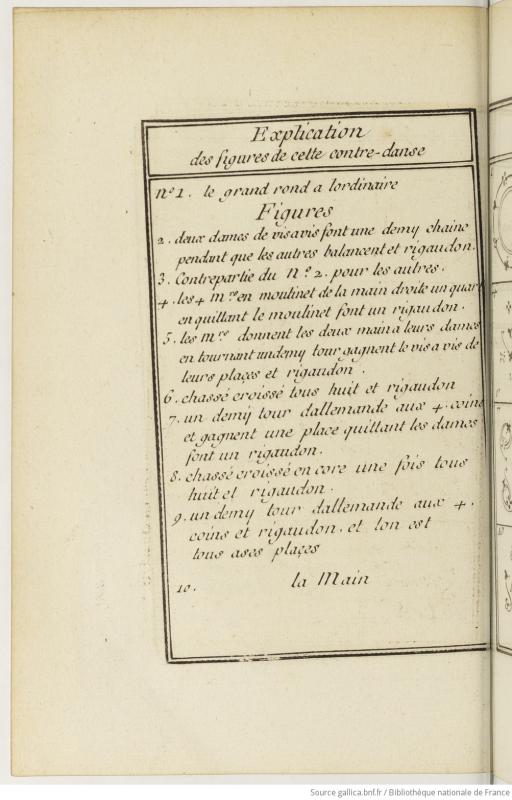 Explication
des figures de cette contre-danse
nº 1. le grand rond a lordinaire
Figures
2. deux dames de visavis font une demy chaine
pendant que les autres balancent et rigaudon.
3. Contrepartie du nº 2. pour les autres.
4. les 4 mrs en moulinet de la main droite un quart
en quillant le moulinet font un rigaudon.
5. les mrs donnent les deux main a leurs dames
en tournant undemy tour gagnent le vis a vis de
leurs plaçes et rigaudon.
6. chassé croissé tous huit et rigaudon
7. un demy tour dallemande aux 4. coins
et gagnent une place quillant les dames
font un rigaudon.
8. chassé croissé en core une fois tous
huit et rigaudon.
9. un demy tour dallemande aux 4.
coins et rigaudon. et lon est
tous ases plaçes
10. la Main
Source gallica.bnf.fr / Bibliothèque nationale de France